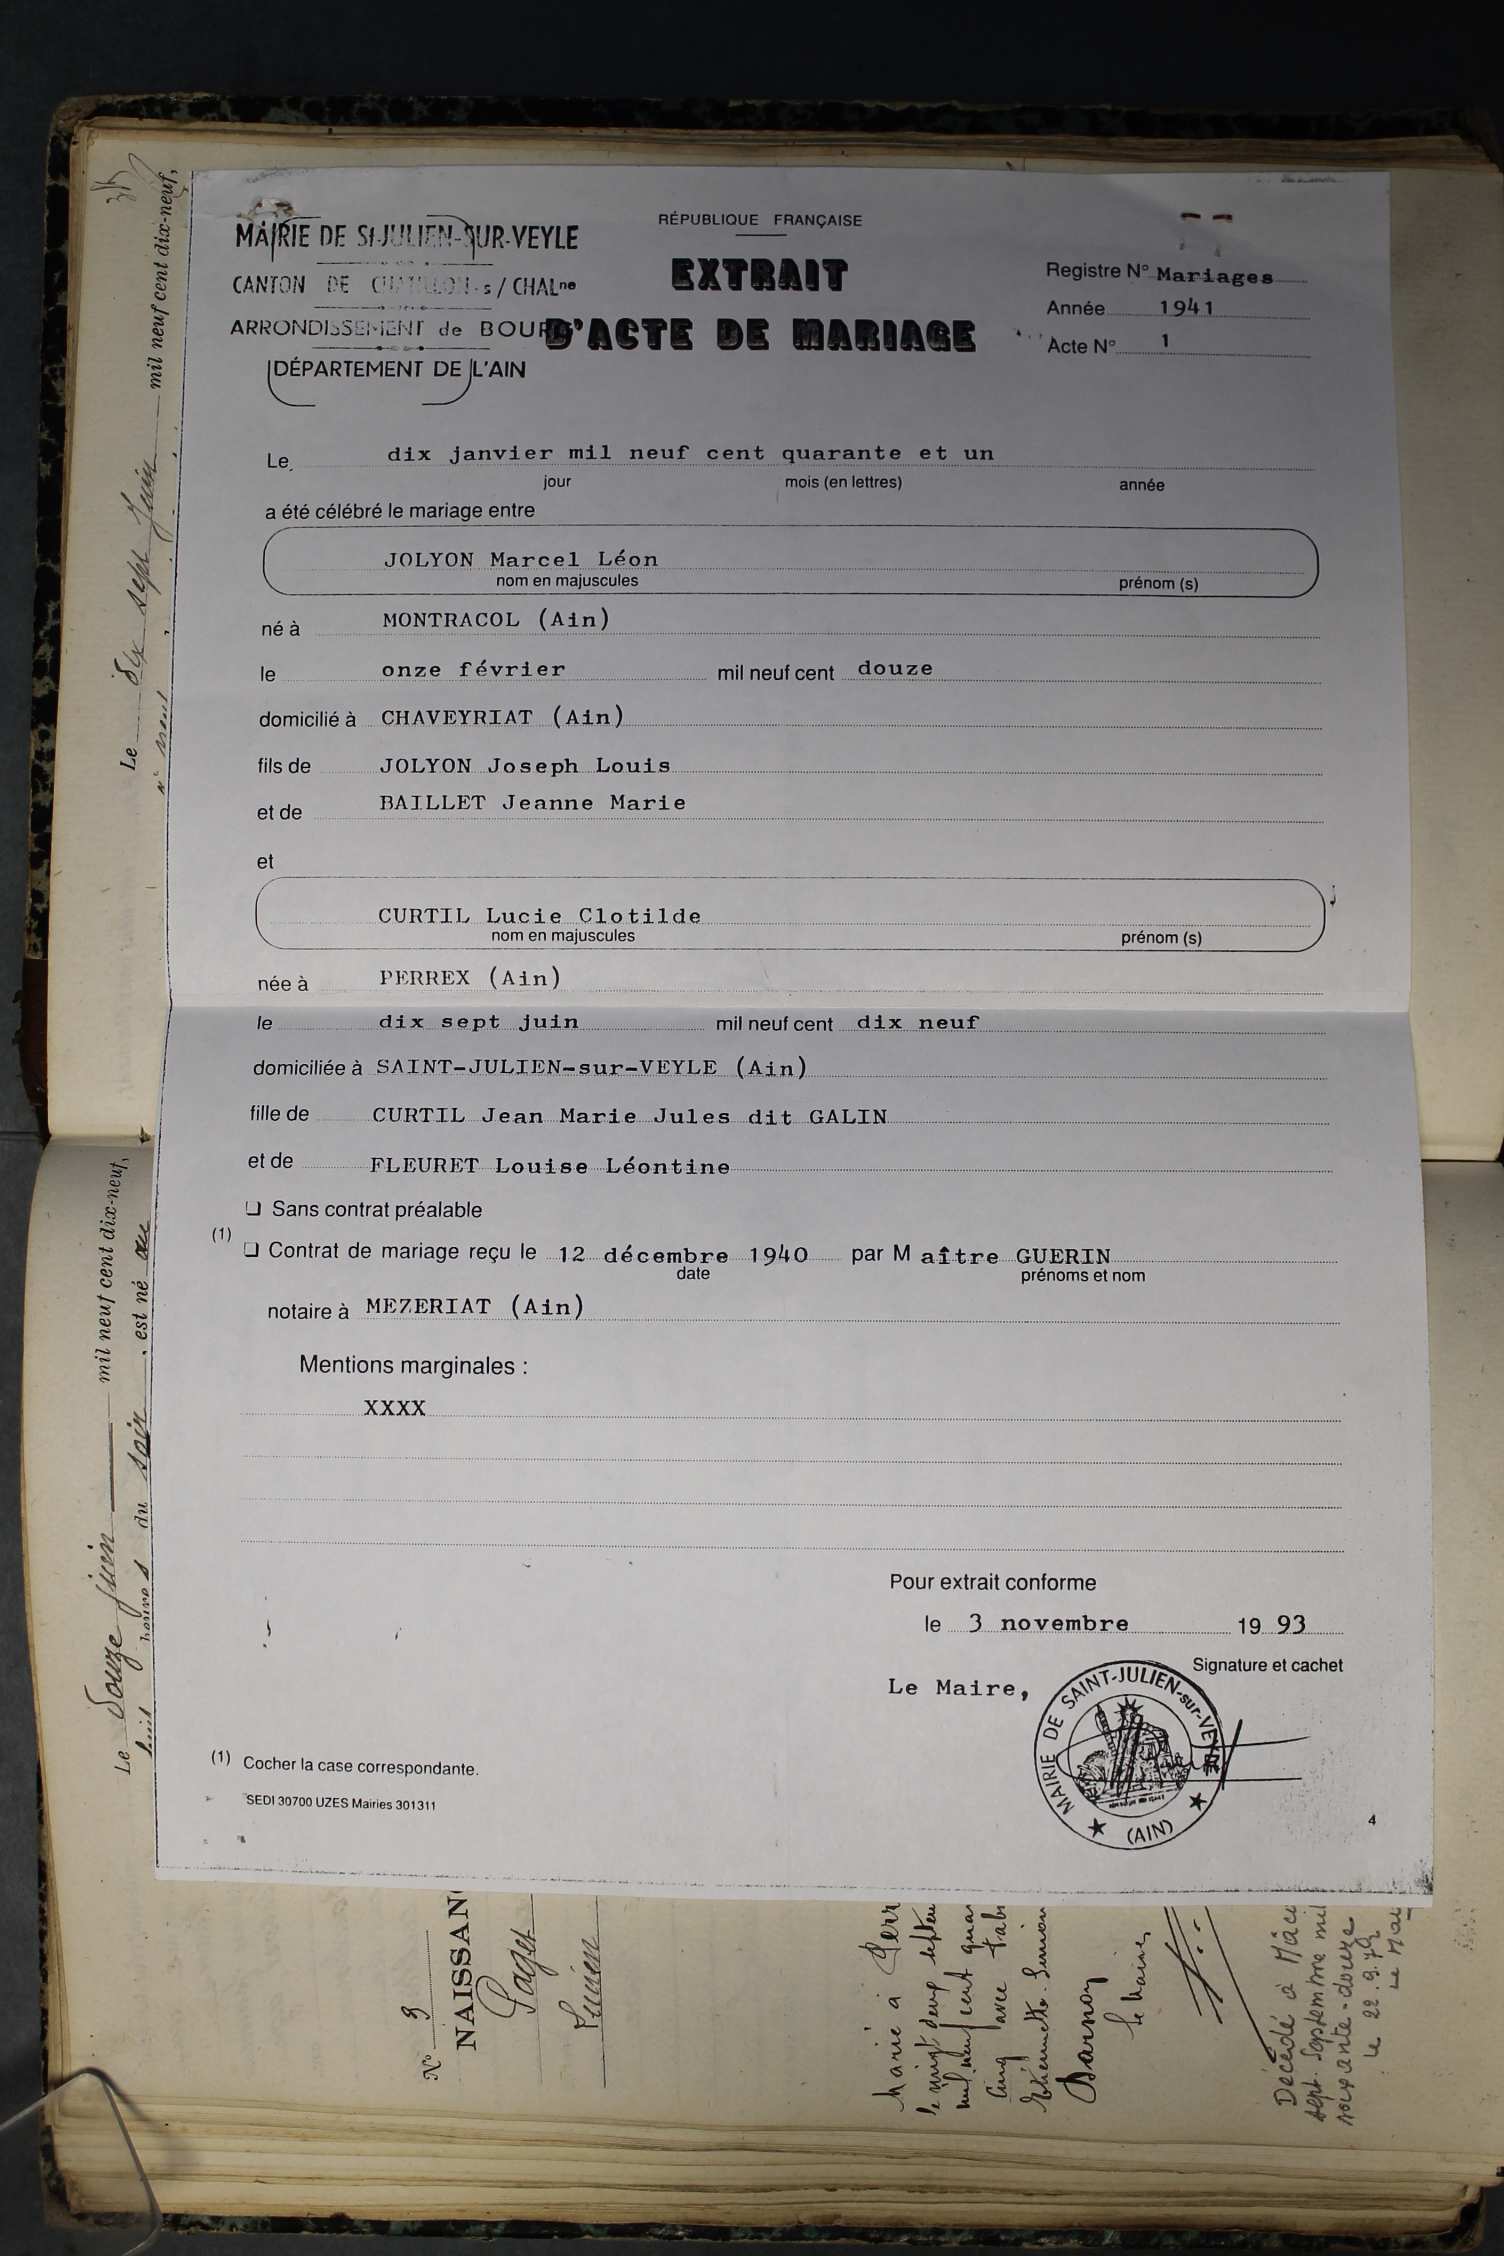 MAIRIE DE St-JULIEN-SUR-VEYLE
CANTON DE CHATILLON-s/CHALne
ARRONDISSEMENT de BOURG
DÉPARTEMENT DE L'AIN
RÉPUBLIQUE FRANÇAISE
EXTRAIT
D'ACTE DE MARIAGE
Registre N° Mariages
Année 1941
Acte N° 1
Le dix janvier mil neuf cent quarante et un
jour mois (en lettres) année
a été célébré le mariage entre
JOLYON Marcel Léon
nom en majuscules prénom (s)
né à MONTRACOL (Ain)
le onze février mil neuf cent douze
domicilié à CHAVEYRIAT (Ain)
fils de JOLYON Joseph Louis
et de BAILLET Jeanne Marie
et
CURTIL Lucie Clotilde
nom en majuscules prénom (s)
née à PERREX (Ain)
le dix sept juin mil neuf cent dix neuf
domiciliée à SAINT-JULIEN-sur-VEYLE (Ain)
fille de CURTIL Jean Marie Jules dit GALIN
et de FLEURET Louise Léontine
❏ Sans contrat préalable
(1)
❏ Contrat de mariage reçu le 12 décembre 1940 par M aître GUERIN
date prénoms et nom
notaire à MEZERIAT (Ain)
Mentions marginales :
XXXX
Pour extrait conforme
le 3 novembre 19 93
Signature et cachet
Le Maire,
MAIRIE DE SAINT-JULIEN-sur-VEYLE
(AIN)
(1) Cocher la case correspondante.
SEDI 30700 UZES Mairies 301311
4
Le dix sept Juin mil neuf cent dix-neuf,
Le Douze juin mil neuf cent dix-neuf,
huit heures du soir, est né au
N° 9
NAISSANC
Marié à Perr
le vingt deux septem
mil neuf cent quar
cinq avec
Le Maire,
Décédé à Mâco
sept Septembre mil
soixante-douze
Le 22.9.72
Le Mai